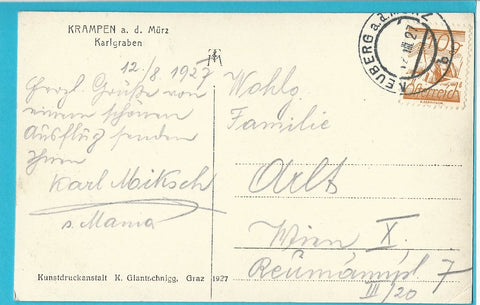 KRAMPEN a. d. Mürz
Karlgraben
12./8. 1927
Herzl. Grüße von
einem schönen
Ausflug senden
Ihnen
Karl Miksch
s. Mama
Kunstdruckanstalt K. Glantschnigg, Graz 1927
NEUBERG a.d. MÜRZ
VIII 27
b
Österreich
Wohlg.
Familie
Arlt
Wien X.
Reumannpl 7
III/20